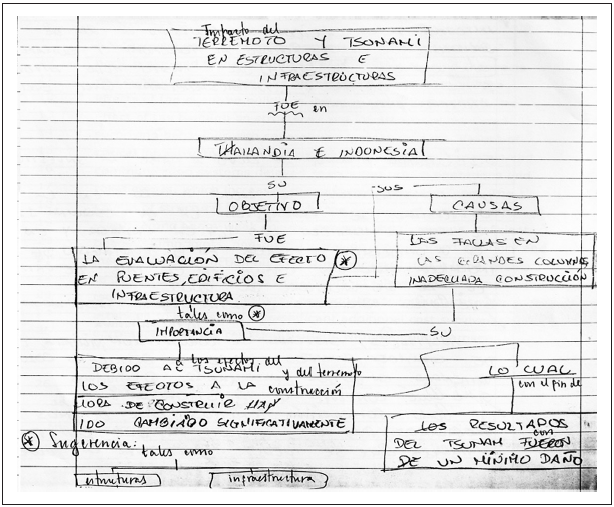 Impacto del
TERREMOTO Y TSUNAMI
EN ESTRUCTURAS E
INFRAESTRUCTURAS
FUE en
THAILANDIA E INDONESIA
SU
OBJETIVO
SUS
CAUSAS
FUE
LA EVALUACIÓN DEL EFECTO
EN PUENTES, EDIFICIOS E
INFRAESTRUCTURA
LAS FALLAS EN
LAS GRANDES COLUMNAS,
INADECUADA CONSTRUCCIÓN
tales como *
IMPORTANCIA
SU
los efectos del
DEBIDO AL TSUNAMI y del terremoto
LOS EFECTOS A LA construcción
HORA DE CONSTRUIR HAN
IDO CAMBIANDO SIGNIFICATIVAMENTE
LO CUAL
con el fin de
LOS RESULTADOS
con
DEL TSUNAM FUERON
DE UN MÍNIMO DAÑO
* Sugerencia:
tales como
estructuras
infraestructura